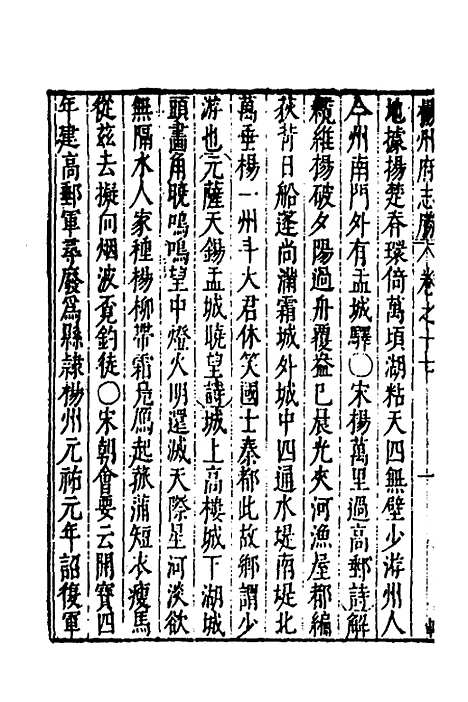 楊州府志勝 卷之十七 一
地據揚楚脊環倚萬頃湖粘天四無壁少游州人
今州南門外有盂城驛〇宋楊萬里過高郵詩解
纜維揚破夕陽過舟覆盎已晨光夾河漁屋都編
荻背日船蓬尚滿霜城外城中四通水堤南堤北
萬垂楊一州斗大君休笑國士秦郎此故鄉謂少
游也元薩天錫盂城曉望詩城上高樓城下湖城
頭畫角曉嗚嗚望中燈火明還滅天際星河淡欲
無隔水人家種楊柳帶霜凫鴈起菰蒲短衣瘦馬
從茲去擬向烟波覓釣徒〇宋朝會要云開寶四
年建高郵軍尋廢爲縣隷楊州元祐元年詔復軍